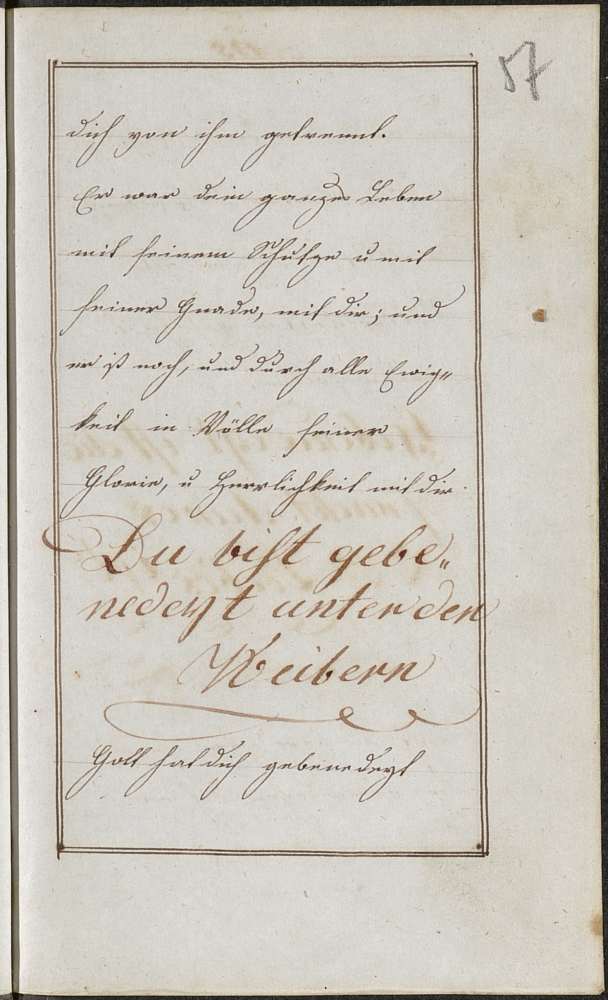 57
dich von ihm getrennt.
Er war dein ganzes Leben
mit seinem Schutze u mit
seiner Gnade, mit dir; und
er ist noch, und durch alle Ewig„
keit in Völle seiner
Glorie, u Herrlichkeit mit dir.
Du bist gebe„
nedeyt unter den
Weibern
Gott hat dich gebenedeyt